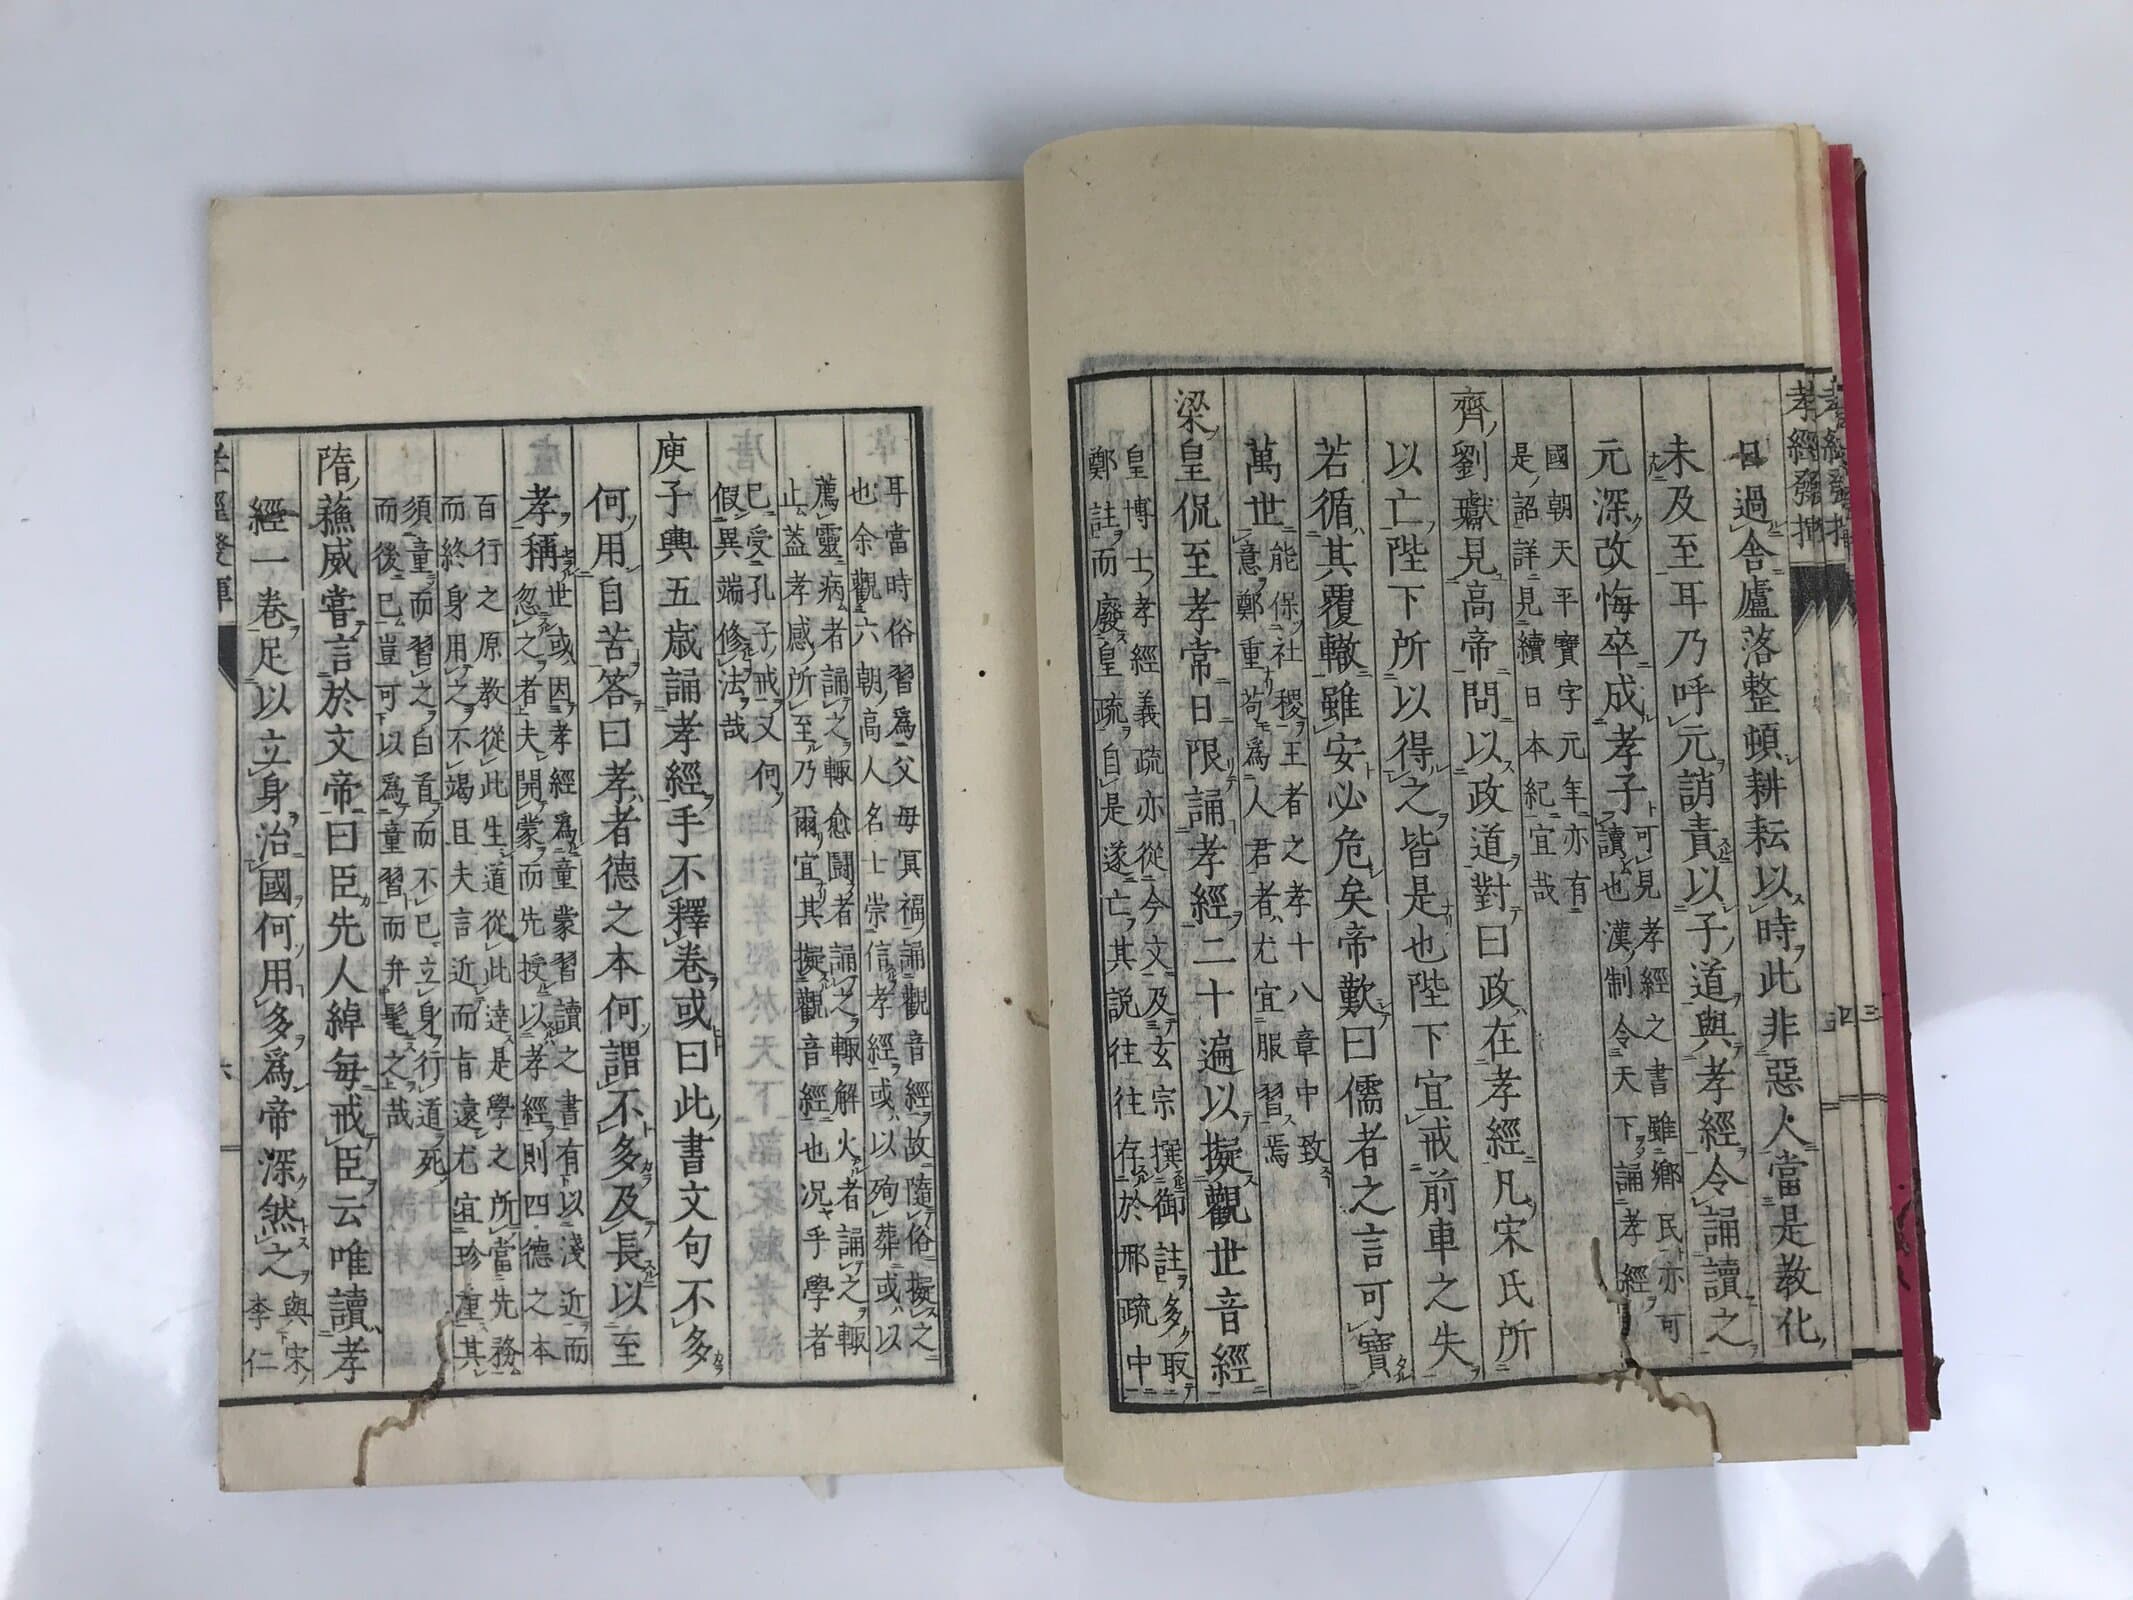 孝經發揮
日過舍廬落整頓耕耘以時此非惡人當是教化
未及至耳乃呼元誚責以子道與孝經令誦讀之
元深改悔卒成孝子可見孝經之書雖鄕民亦可
讀也漢制令天下誦孝經
國朝天平寶字元年亦有
是詔詳見續日本紀宜哉
齊劉瓛見高帝問以政道對曰政在孝經凡宋氏所
以亡陛下所以得之皆是也陛下宜戒前車之失
若循其覆轍雖安必危矣帝歎曰儒者之言可寶
萬世能保社稷王者之孝十八章中致
意鄭重苟爲人君者尤宜服習焉
梁皇侃至孝常日限誦孝經二十遍以擬觀世音經
皇博士孝經義疏亦從今文及玄宗撰御註多取
鄭註而廢皇疏自是遂亡其説往往存於邢疏中
耳當時俗習爲父母冥福誦觀音經故隨俗擬之
也余觀六朝高人名士崇信孝經或以殉葬或以
薦靈病者誦之輙愈鬪者誦之輙解火者誦之輙
止葢孝感所至乃爾宜其擬觀音經也况乎學者
已受孔子戒又何
假異端修法哉
庾子輿五歳誦孝經手不釋卷或曰此書文句不多
何用自苦答曰孝者德之本何謂不多及長以至
孝稱世或因孝經爲童蒙習讀之書有以淺近而
忽之者夫開蒙而先授以孝經則四德之本
百行之原教從此生道從此達是學之所當先務
而終身用之不竭且夫言近而旨遠尤宜珍重其
須童而習之白首而不已立身行道死
而後已豈可以爲童習而弁髦之哉
隋蘇威嘗言於文帝曰臣先人綽毎戒臣云唯讀孝
經一卷足以立身治國何用多爲帝深然之與宋
李仁